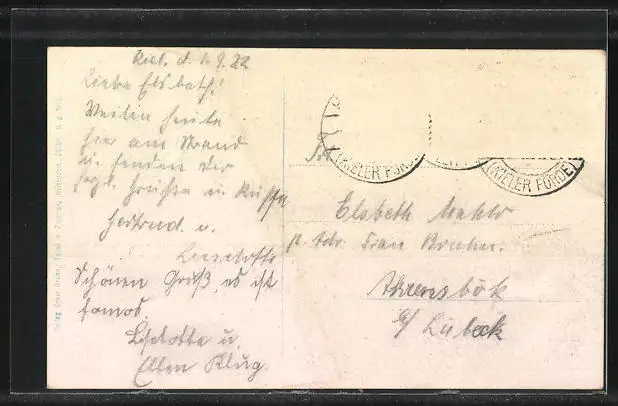 Kiel, d. 1.9.22
Liebe Elsbeth!
Weilen heute
hier am Strand
u. senden Dir
herzl. Grüsse u. Küsse
Gertrud u.
Lieselotte
Schönen Gruß, es ist
famos.
Lieselotte u.
Ellen Klug.
(KIELER FÖRDE
(KIELER FÖRDE)
Elsbeth Mahlo
p. Adr. Frau
Ahrensbök
b/ Lübeck